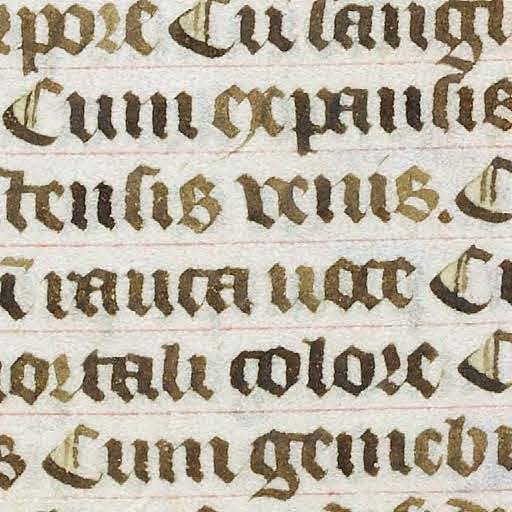 rpore Cu langu
Cum expansis
tensis venis. C
rauca uoce Cu
mortali colore C
s Cum gemebu